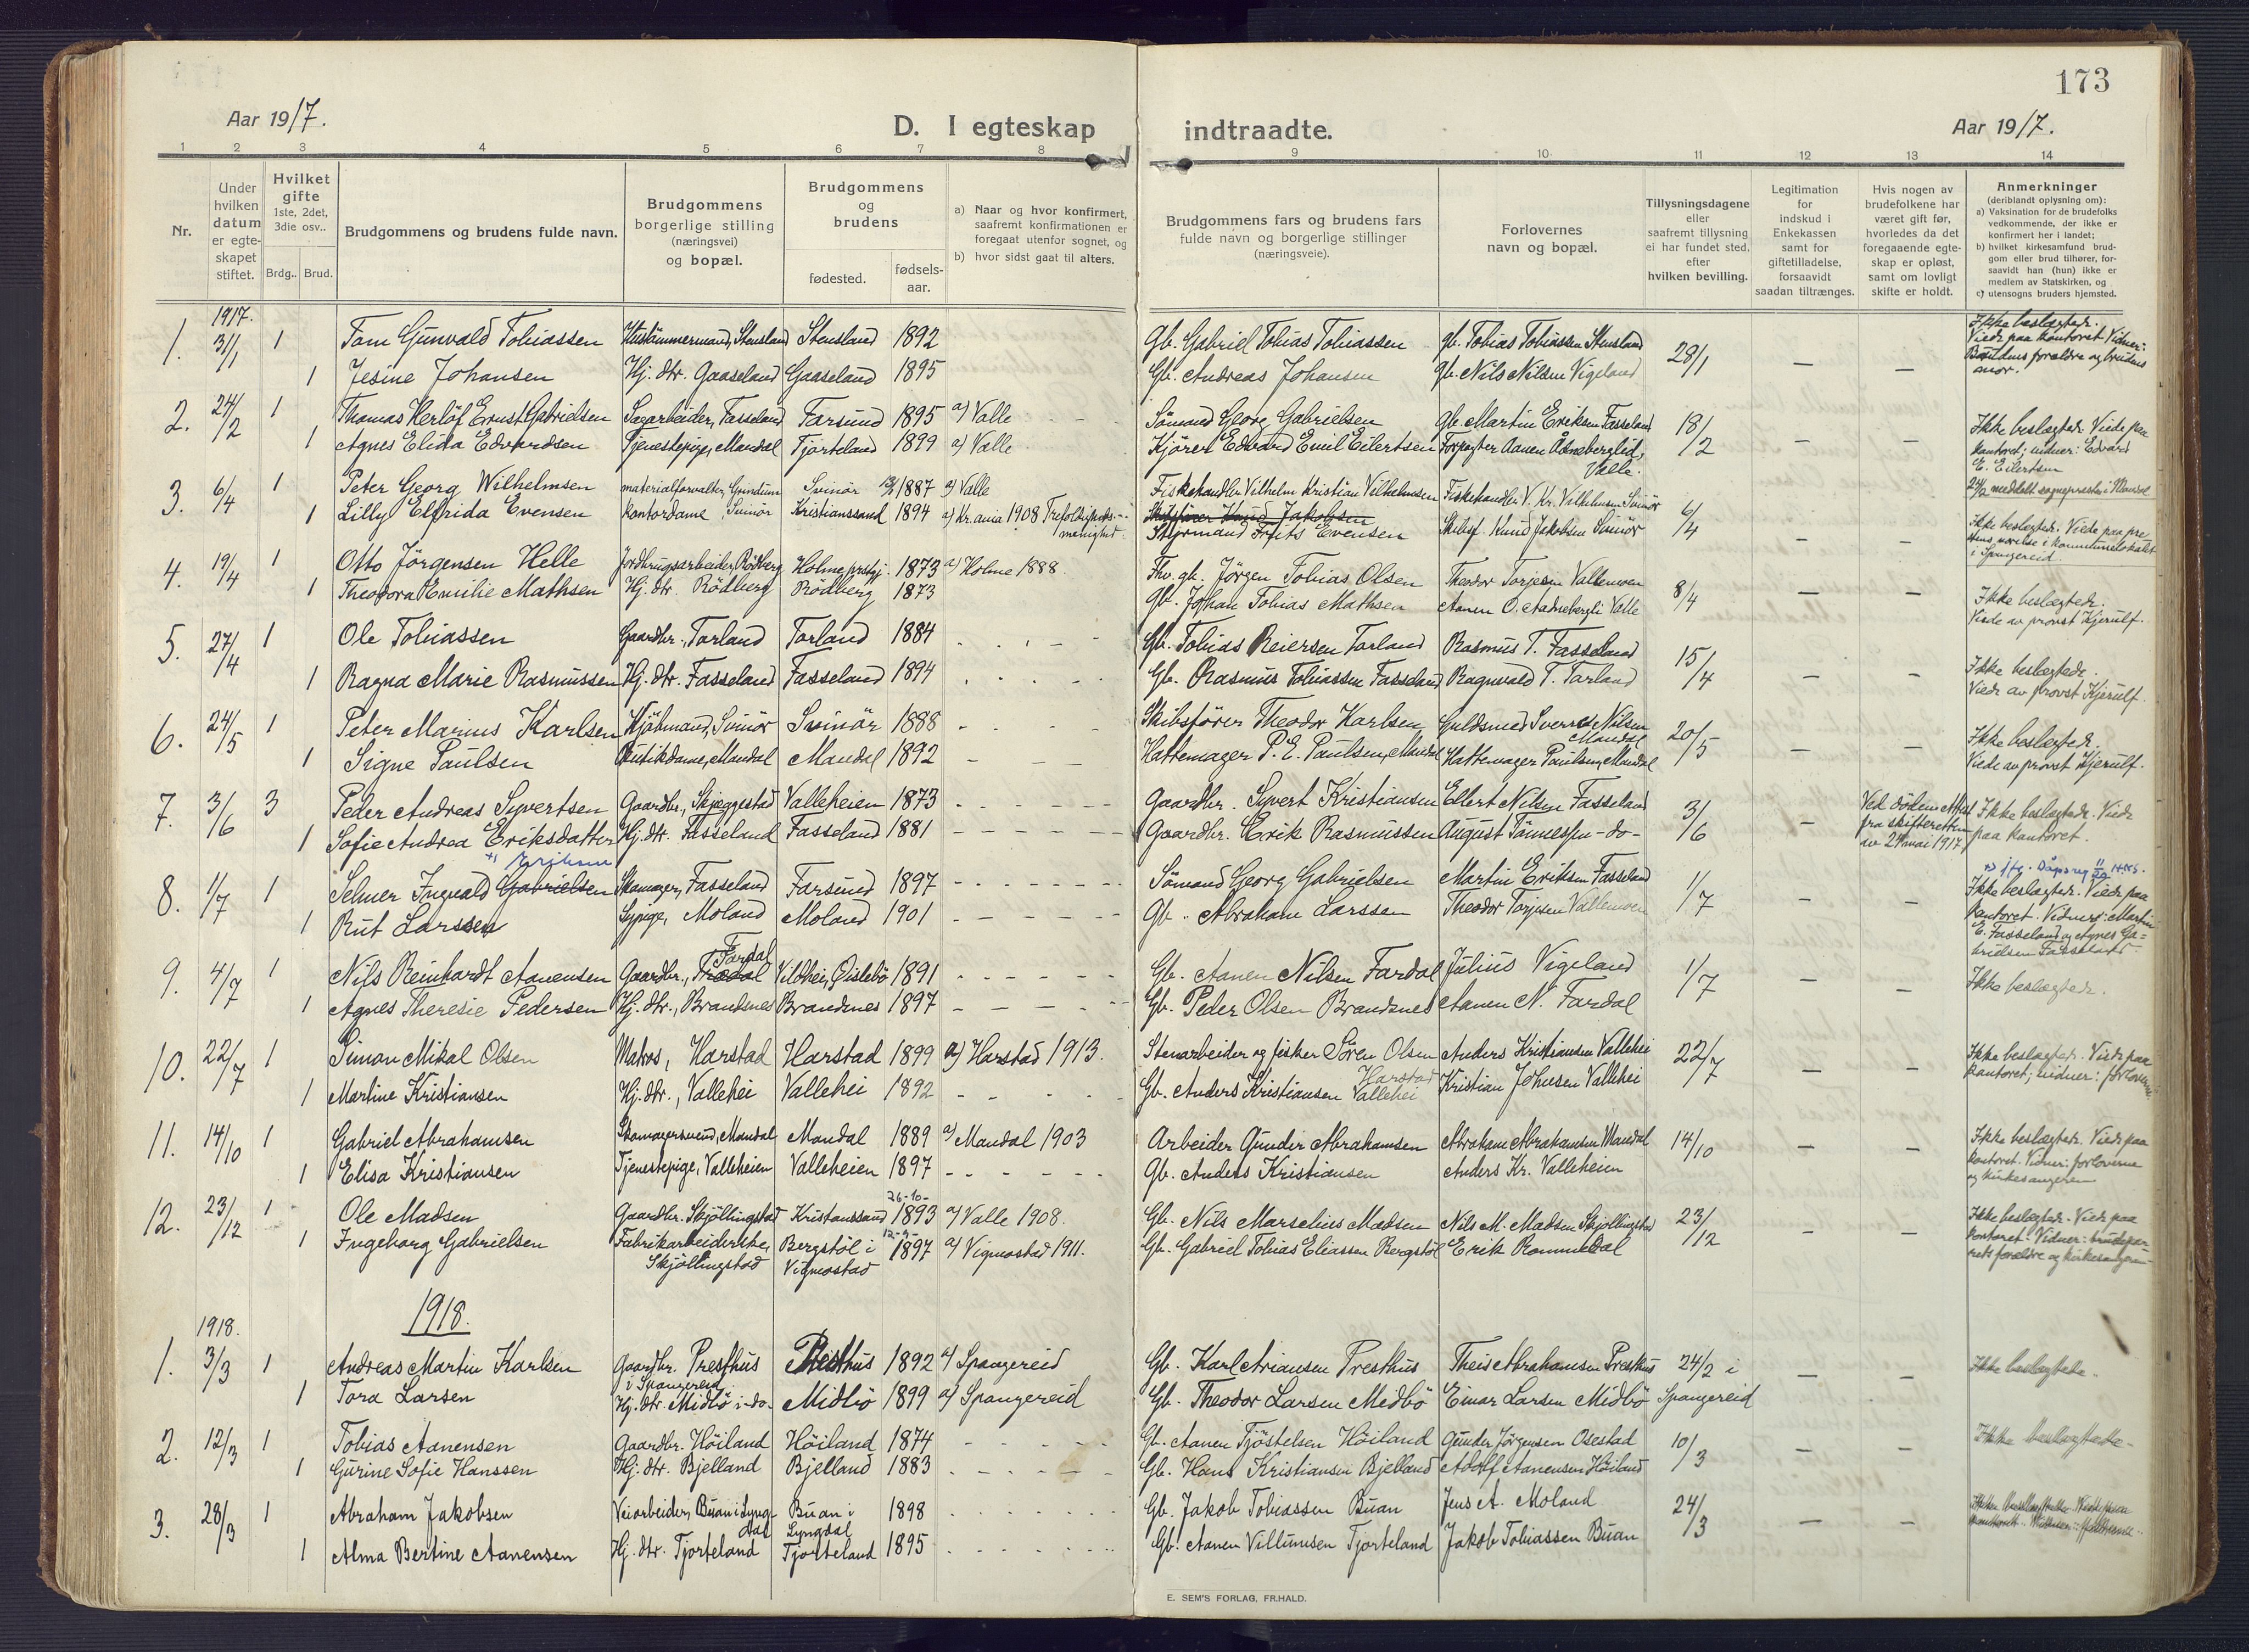 173
Aar 1917.
D. I egteskap
indtraadte.
Aar 1917.
1 2 3 4 5 6 7 8 9 10 11 12 13 14
Nr.
Under hvilken datum er egteskapet stiftet.
Hvilket gifte 1ste, 2det, 3die osv..
Brdg.. Brud.
Brudgommens og brudens fulde navn.
Brudgommens borgerlige stilling (næringsvei) og bopæl.
Brudgommens og brudens
fødested.
fødsels-aar.
a) Naar og hvor konfirmert, saafremt konfirmationen er foregaat utenfor sognet, og
b) hvor sidst gaat til alters.
Brudgommens fars og brudens fars fulde navn og borgerlige stillinger (næringsveie).
Forlovernes navn og bopæl.
Tillysningsdagene eller saafremt tillysning ei har fundet sted. efter hvilken bevilling.
Legitimation for indskud i Enkekassen samt for giftetilladelse, forsaavidt saadan tiltrænges.
Hvis nogen av brudefolkene har været gift før, hvorledes da det foregaaende egteskap er opløst, samt om lovligt skifte er holdt.
Anmerkninger (deriblandt oplysning om):
a) Vaksination for de brudefolks vedkommende, der ikke er konfirmert her i landet;
b) hvilket kirkesamfund brudgom eller brud tilhører, forsaavidt han (hun) ikke er medlem av Statskirken, og
c) utensogns bruders hjemsted.
1917.
1. 3/1 1 Tom Gunvald Tobiassen Hustømmermand, Stensland Stensland 1892 Gb. Gabriel Tobias Tobiassen gb. Tobias Tobiassen Stensland 28/1 — — Ikke beslægtede. Viede paa kontoret Vidner:
1 Jesine Johansen Hj. dtr. Gaaseland Gaaseland 1895 Gb. Andreas Johansen gb. Nils Nilsen Vigeland forældre og brudens mor.
2. 24/2 1 Thomas Herlöf Ernst Gabrielsen Sagarbeider, Fasseland Farsund 1895 a) Valle Sömand Georg Gabrielsen Gb. Martin Eriksen Fasseland 18/2 — — Ikke beslægtede. Viede paa
1 Agnes Elida Edvardsen Tjenestepige, Mandal Tjorteland 1899 a) Valle Kjörer Edvard Emil Eilertsen Forpagter Aanen Valle. kontoret; vidner: Edvard E. Eilertsen
3. 6/4 1 Peter Georg Wilhelmsen materialforvalter, Grindum Svinör 1887 a) Valle Fiskehandler Vilhelm Kristian Vilhelmsen Fiskehandler V. Kr. Vilhelmsen Svinör 6/4 — — 24/2 meddelt sogneprest i Mandal
1 Lilly Elfrida Evensen Kontordame, Svinör Kristianssand 1894 a) Kr.ania 1908 Trefoldigheds-menighed. Skibsförer Knud Jakobsen Styrmand Frits Evensen Skibsf. Knud Jakobsen Svinör Ikke beslægtede. Viede paa kommunelokalet i Spangereid.
4. 19/4 1 Otto Jörgensen Helle Jordbrugsarbeider, Rödberg Holme prstgj. 1873 a) Holme 1888. Fhv. gb. Jörgen Tobias Olsen Theodor Torjesen Vallemoen 8/4 — —
1 Theodora Emilie Mathsen Hj. dtr. Rödberg Rödberg 1873 Gb. Johan Tobias Mathsen Aanen O. Aadnebergli Valle Ikke beslægtede. Viede av provst Kjerulf.
5. 27/4 1 Ole Tobiassen Gaardbr., Tarland Tarland 1884 Gb. Tobias Reiersen Tarland Rasmus T. Fasseland 15/4 — —
1 Ragna Marie Rasmussen Hj. dtr. Fasseland Fasseland 1894 Gb. Rasmus Tobiassen Fasseland Ragnvald T. Tarland Ikke beslægtede. Viede av provst Kjerulf.
6. 24/5 1 Peter Marius Karlsen Kjöbmand, Svinör Svinör 1888 Skibsförer Theodor Karlsen Guldsmed Sverre Nilsen Mandal 20/5 — —
1 Signe Paulsen Butikdame, Mandal Mandal 1892 Hattemager P. E. Paulsen, Mandal Hattemager Paulsen, Mandal Ikke beslægtede. Viede av provst Kjerulf.
7. 3/6 3 Peder Andreas Syvertsen Gaardbr., Skjeggestad Valleheien 1873 Gaardbr. Syvert Kristiansen Ellert Nilsen Fasseland 3/6 — Ved döden Attest fra skifteretten av 24 mai 1917 Ikke beslægtede. Viede paa kontoret.
1 Sofie Andrea Eriksdatter Hj. dtr. Fasseland Fasseland 1881 Gaardbr. Erik Rasmussen August Tönnessen -do-
8. 1/7 1 Selmer Ingvald Gabrielsen +) Eriksen Skomager, Fasseland Farsund 1897 Sömand Georg Gabrielsen Martin Eriksen Fasseland 1/7 — — Ikke beslægtede. Viede paa kontoret. Vidner: Martin E. Fasseland og Agnes Gabrielsen Fasseland
1 Rut Larssen Sypige, Moland Moland 1901 Gb. Abraham Larssen Theodor Torjesen Vallemoen
9. 4/7 1 Nils Reinhardt Aanensen Gaardbr., Fardal Vildhei, Öislebö 1891 Gb. Aanen Nilsen Fardal Julius Vigeland 1/7 — — Ikke beslægtede.
1 Agnes Theresie Pedersen Hj. dtr., Brandsnes Brandsnes 1897 Gb. Peder Olsen Brandsnes Aanen N. Fardal
10. 22/7 1 Simon Mikal Olsen Matros, Harstad Harstad 1899 a) Harstad 1913. Stenarbeider og fisker Sören Olsen Harstad Anders Kristiansen Vallehei 22/7 — — Ikke beslægtede. Viede paa kontoret; vidner: forloverne
1 Martine Kristiansen Hj. dtr., Vallehei Vallehei 1892 Gb. Anders Kristiansen Vallehei Kristian Johnsen Vallehei
11. 14/10 1 Gabriel Abrahamsen Skomagersvend, Mandal Mandal 1889 a) Mandal 1903 Arbeider Gunder Abrahamsen Abraham Abrahamsen Mandal 14/10 — — Ikke beslægtede. Viede paa kontoret. Vidner: forloverne og kirkesangeren
1 Elisa Kristiansen Tjenestepige, Valleheien Valleheien 1897 Gb. Anders Kristiansen Anders Kr. Valleheien
12. 23/12 1 Ole Madsen Gaardbr. Skjöllingstad Kristianssand 26-10- 1893 a) Valle 1908. Gb. Nils Marselius Madsen Nils M. Madsen Skjöllingstad 23/12 — — Ikke beslægtede. Viede paa kontoret. Vidner: brudeparrets forældre og kirkesangeren
1 Ingeborg Gabrielsen Fabrikarbeiderske, Skjöllingstad Bergstöl i Vigmostad 1897 a) Vigmostad 1911. Gb. Gabriel Tobias Eliassen Bergstöl Erik Rommedal
1918.
1918.
1. 3/3 1 Andreas Martin Karlsen Gaardbr. Presthus i Spangereid Presthus 1892 a) Spangereid Gb. Karl Ariansen Presthus Theis Abrahamsen Presthus 24/2 i Spangereid — — Ikke beslægtede.
1 Tora Larsen Hj. dtr. Midbö i -do- Midbö 1899 a) Spangereid Gb. Theodor Larsen Medbö Einar Larsen Midbö
2. 12/3 1 Tobias Aanensen Gaardbr. Höiland Höiland 1874 Gb. Aanen Tjöstelsen Höiland Gunder Jörgensen Osestad 10/3 — — Ikke beslægtede.
1 Gurine Sofie Hanssen Hj. dtr. Bjelland Bjelland 1883 Gb. Hans Kristiansen Bjelland Adolf Aanensen Höiland
3. 28/3 1 Abraham Jakobsen Veiarbeider, Buan i Lyngdal Buan i Lyngdal 1898 Gb. Jakob Tobiassen Buan Jens A. Moland 24/3 — — Ikke beslægtede. Viede paa kontoret.
1 Alma Bertine Aanensen Hj. dtr. Tjorteland Tjorteland 1895 Gb. Aanen Villumsen Tjorteland Jakob Tobiassen Buan
E. SEM'S FORLAG, FR.HALD.